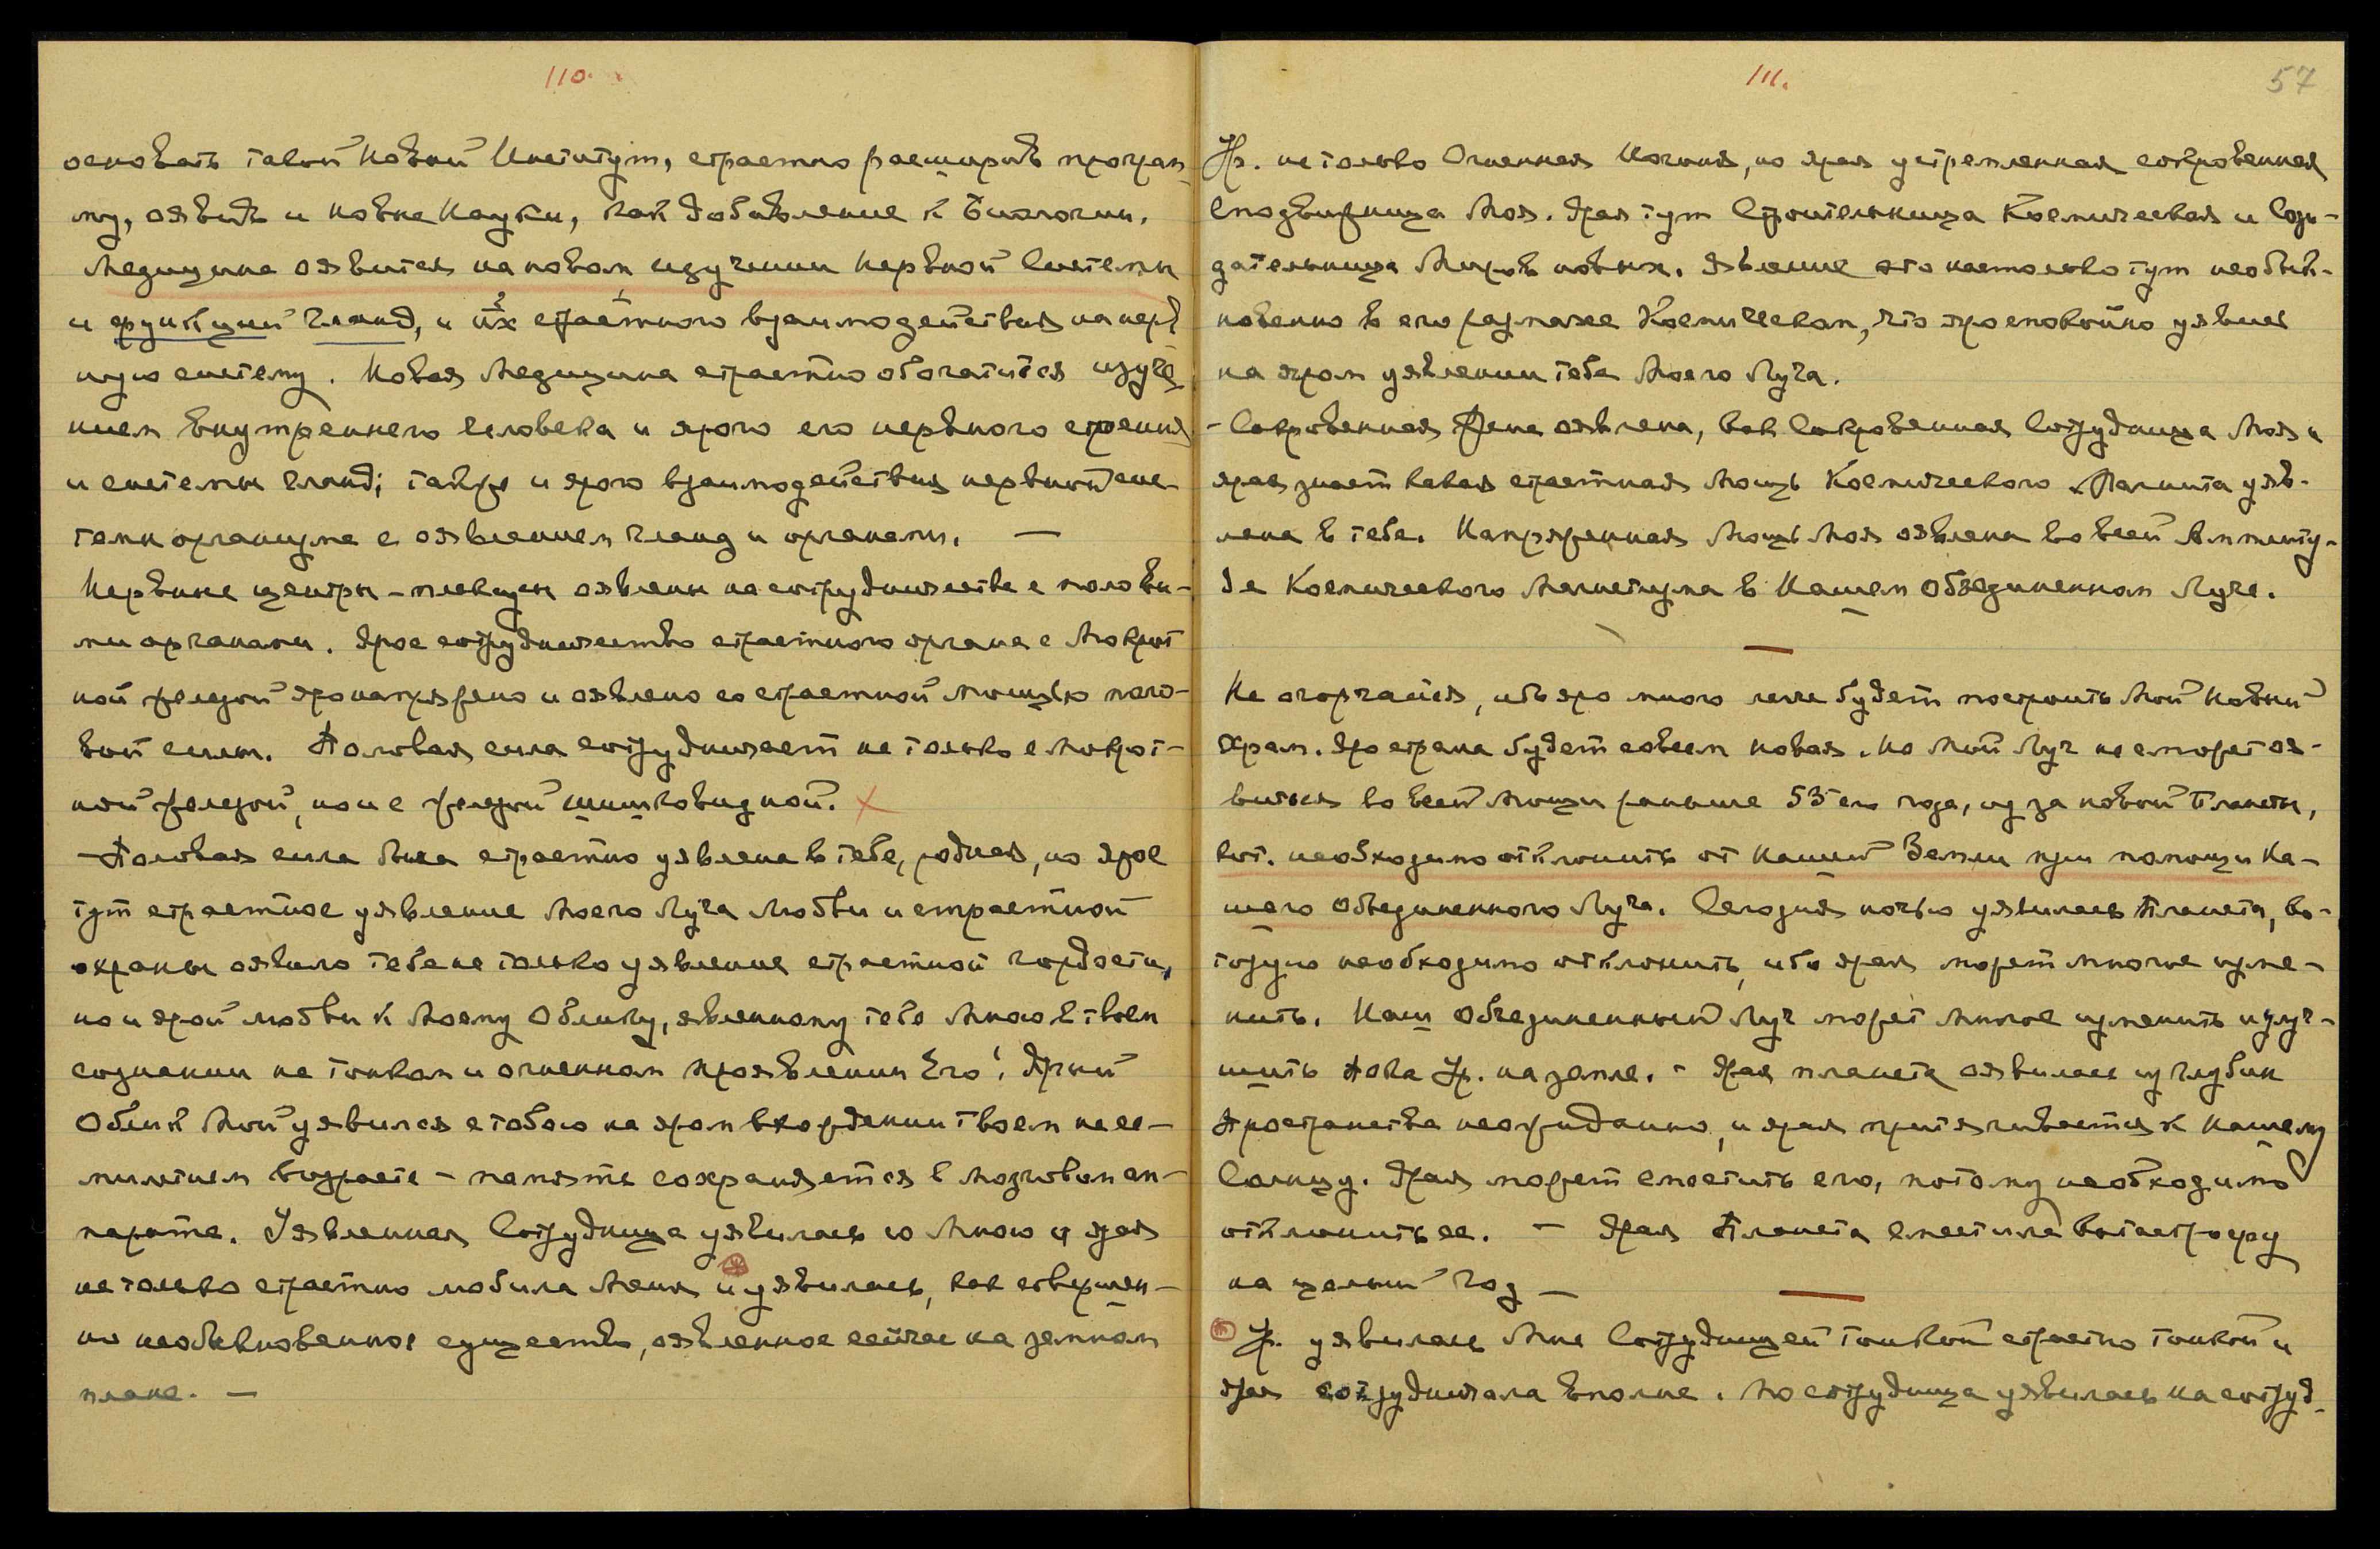 110.
основать такой новый Институт, страстно расширить програм-
му, оявить и новые Науки, как добавление к Биологии.
Медицина оявится на новом изучении нервной системы
и функций гланд, и их страстного взаимодействия на нерв-
ную систему. Новая Медицина страстно обогатится изуче-
нием внутреннего человека и ярого его нервного строения
и системы гланд; также и ярого взаимодействия нервной сис-
темы организма с оявлением гланд и органами. —
Нервные центры – плексусы оявлены на сотрудничестве с половы-
ми органами. Ярое сотрудничество страстного органа с мокрот-
ной железой яро напряжено и оявлено со страстной мощью поло-
вой силы. Половая сила сотрудничает не только с мокрот-
ной железой, но и с железой шишковидной.
– Половая сила была страстно уявлена в тебе, родная, но ярое
тут страстное уявление Моего Луча Любви и страстной
охраны оявило тебе не только уявление страстной гордости,
но и ярой любви к Моему Облику, явленному тебе Мною в твоем
сознании на тонком и огненном проявлении Его! Ярый
Облик Мой уявился с тобою на яром вхождении твоем на се-
милетнем возрасте – память сохраняется в мозговом ап-
парате. Уявленная Сотрудница уявилась со Мною и ярая
не только страстно любила Меня и уявилась, как совершен-
но необыкновенное существо, оявленное сейчас на земном
плане. —
111.
57
Ур. не только Огненная Йогиня, но ярая устремленная сокровенная
сподвижница Моя. Ярая тут Строительница Космическая и Соз-
дательница Миров новых. Явление это настолько тут необык-
новенно в его размахе Космическом, что яро спокойно уявися
на яром уявлении тебе Моего Луча.
– Сокровенная Жена оявлена, как Сокровенная Сотрудница Моя и
ярая знает какая страстная мощь Космического Магнита уяв-
лена в тебе. Напряженная Мощь Моя оявлена во всей Амплиту-
де Космического Магнетизма в Нашем Объединенном Луче.
—
Не огорчайся, ибо яро много легче будет построить Мой Новый
Храм. Яро страна будет совсем новая. Но Мой Луч не сможет оя-
виться во всей мощи раньше 55-го года, из за новой Планеты,
кот. необходимо отклонить от нашей Земли при помощи На-
шего Объединенного Луча. Сегодня ночью уявилась Планета, ко-
торую необходимо отклонить, ибо ярая может многое изме-
нить. Наш Объединенный Луч может многое изменить и улуч-
шить пока Ур. на земле. – Ярая планета оявилась из глубин
Пространства неожиданно, и ярая притягивается к нашему
Солнцу. Ярая может сместить его, потому необходимо
отклонить ее. — Ярая Планета сместила катастрофу
на целый год —
Ур. уявилась Мне Сотрудницей тонкой страстно тонкой и
ярая сотрудничала вполне. Но сотрудница уявилась на сотруд-